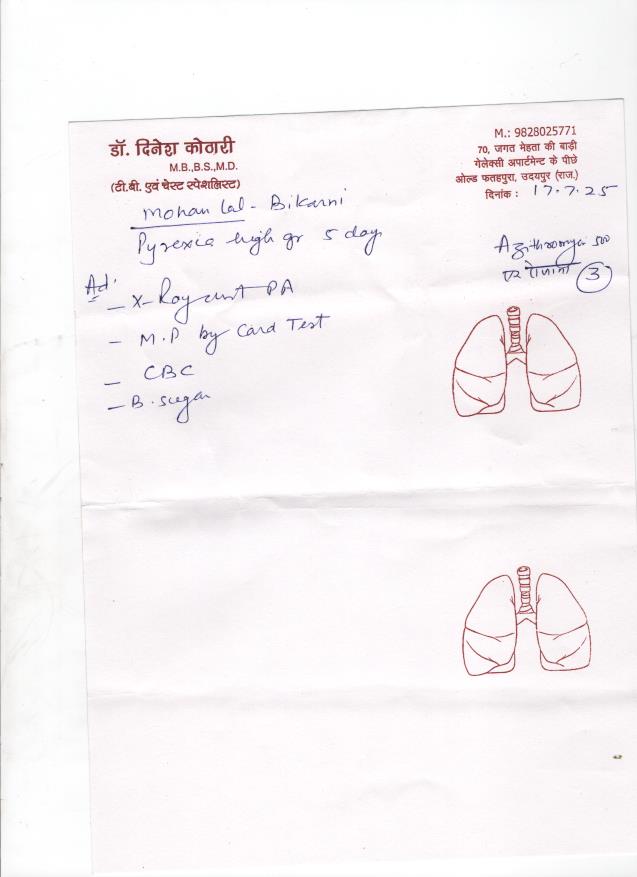 डॉ. दिनेश कोठारी
M.B.,B.S.,M.D.
(टी.बी. एवं चेस्ट स्पेशलिस्ट)
M.: 9828025771
70, जगत मेहता की बाड़ी
गेलेक्सी अपार्टमेन्ट के पीछे
ओल्ड फतहपुरा, उदयपुर (राज.)
दिनांक : 17.7.25
Mohan Lal - Bikarni
Pyrexia high gr 5 days
Azithromycin 500
रोजाना 3
Ad'
- X-Ray PA
- M.P by Card Test
- CBC
- B. sugar